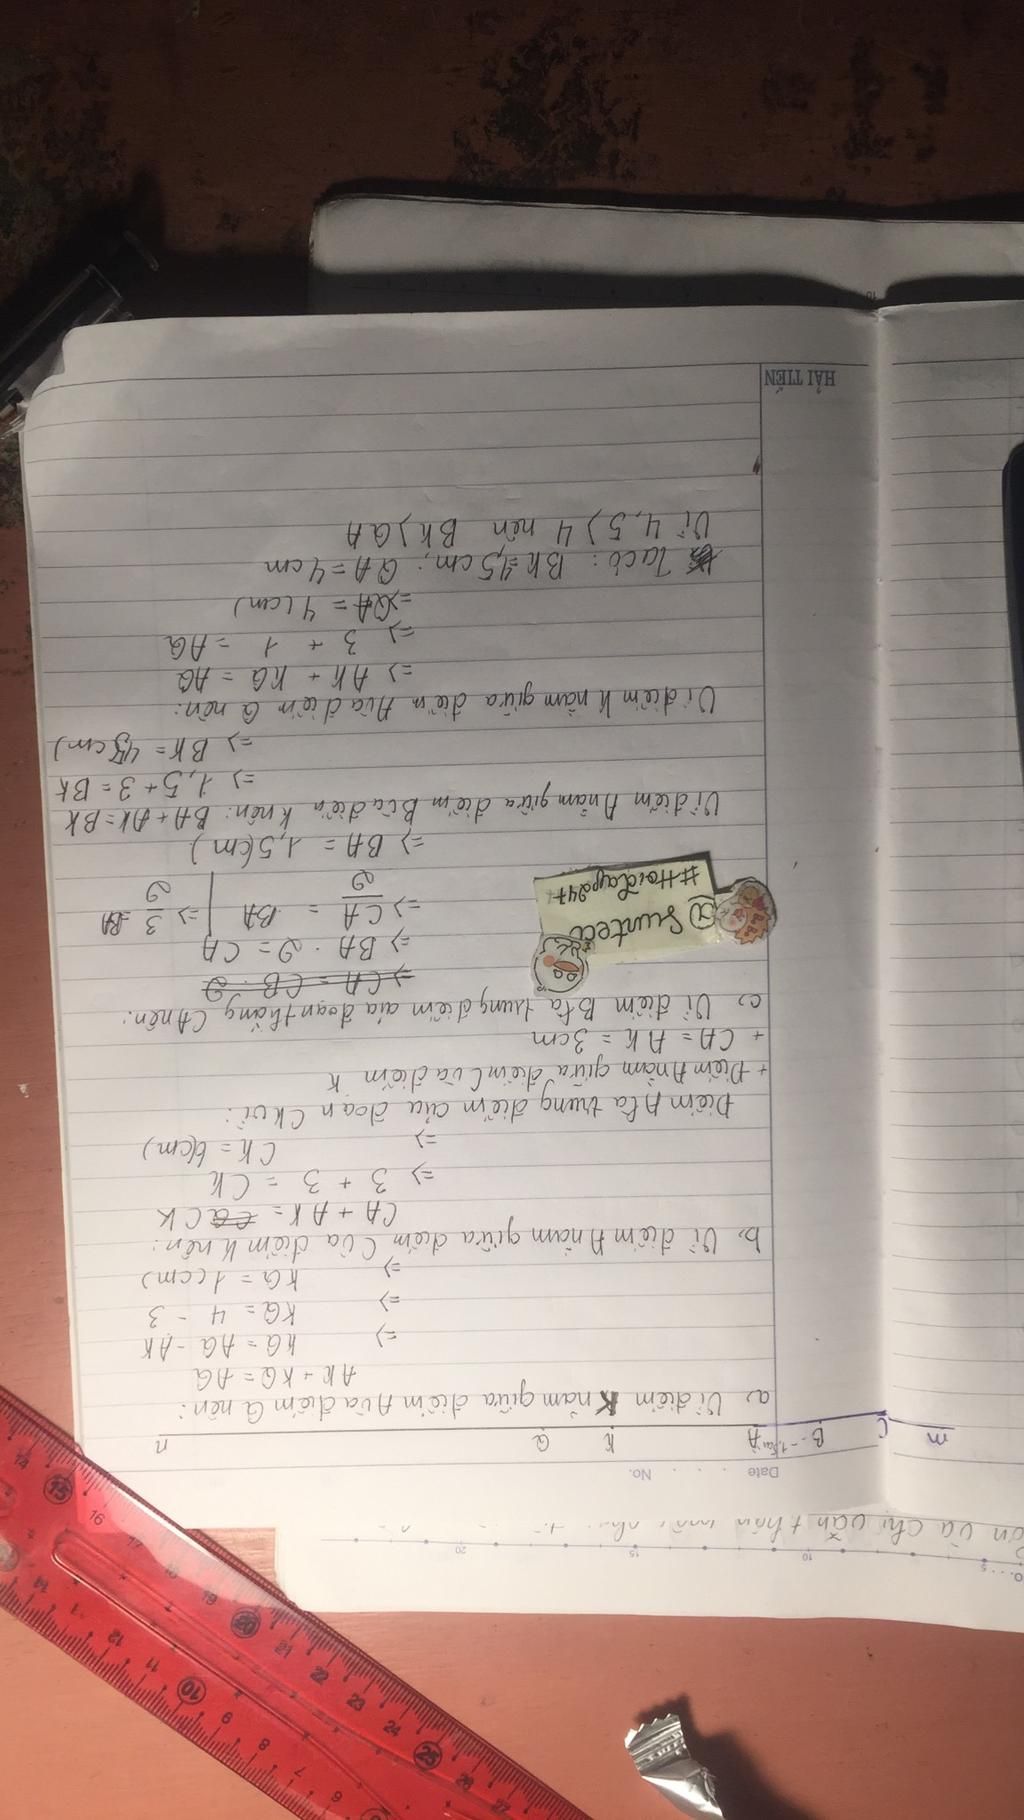 Date No.
m C B 1,5cm A K Q n
a, Vì điểm K nằm giữa điểm A và điểm Q nên:
AK + KQ = AQ
=> KQ = AQ - AK
=> KQ = 4 - 3
=> KQ = 1 (cm)
b, Vì điểm A nằm giữa điểm C và điểm K nên:
CA + AK = CK
=> 3 + 3 = CK
=> CK = 6(cm)
Điểm A là trung điểm của đoạn CK vì:
+ Điểm A nằm giữa điểm C và điểm K
+ CA = AK = 3cm
c, Vì điểm B là trung điểm của đoạn thẳng CA nên:
=> CA = CB . 2
=> BA . 2 = CA
=> CA/2 = BA | => 3/2 = BA
=> BA = 1,5(cm)
@Sunteco
#Hoidap247
Vì điểm A nằm giữa điểm B và điểm K nên: BA + AK = BK
=> 1,5 + 3 = BK
=> BK = 4,5(cm)
Vì điểm K nằm giữa điểm A và điểm Q nên:
=> AK + KQ = AQ
=> 3 + 1 = AQ
=> QA = 4 (cm)
Ta có: BK = 4,5cm; QA = 4cm
Vì 4,5 > 4 nên BK > QA
HẢI TIẾN